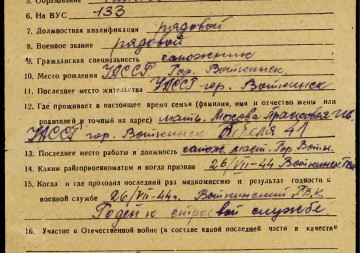 5. Образование
6. На ВУС 133
7. Должностная квалификация рядовой
8. Военное звание рядовой
9. Гражданская специальность сапожник
10. Место рождения УАССР Гор. Воткинск
11. Последнее место жительства УАССР гор. Воткинск
12. Где проживает в настоящее время семья (фамилия, имя и отчество жены или
родителей и точный их адрес) мать
УАССР гор. Воткинск 41
13. Последнее место работы и должность сапож. маст. Гор. Вотк.
14. Каким райгорвоенкоматом и когда призван 26/VII-44 Воткинск
15. Когда и где проходил последний раз медкомиссию и результат годности к
военной службе 26/VII-44г. Воткинский ГВК
Годен к строевой службе
16. Участие в Отечественной войне (в составе какой последней части в качестве